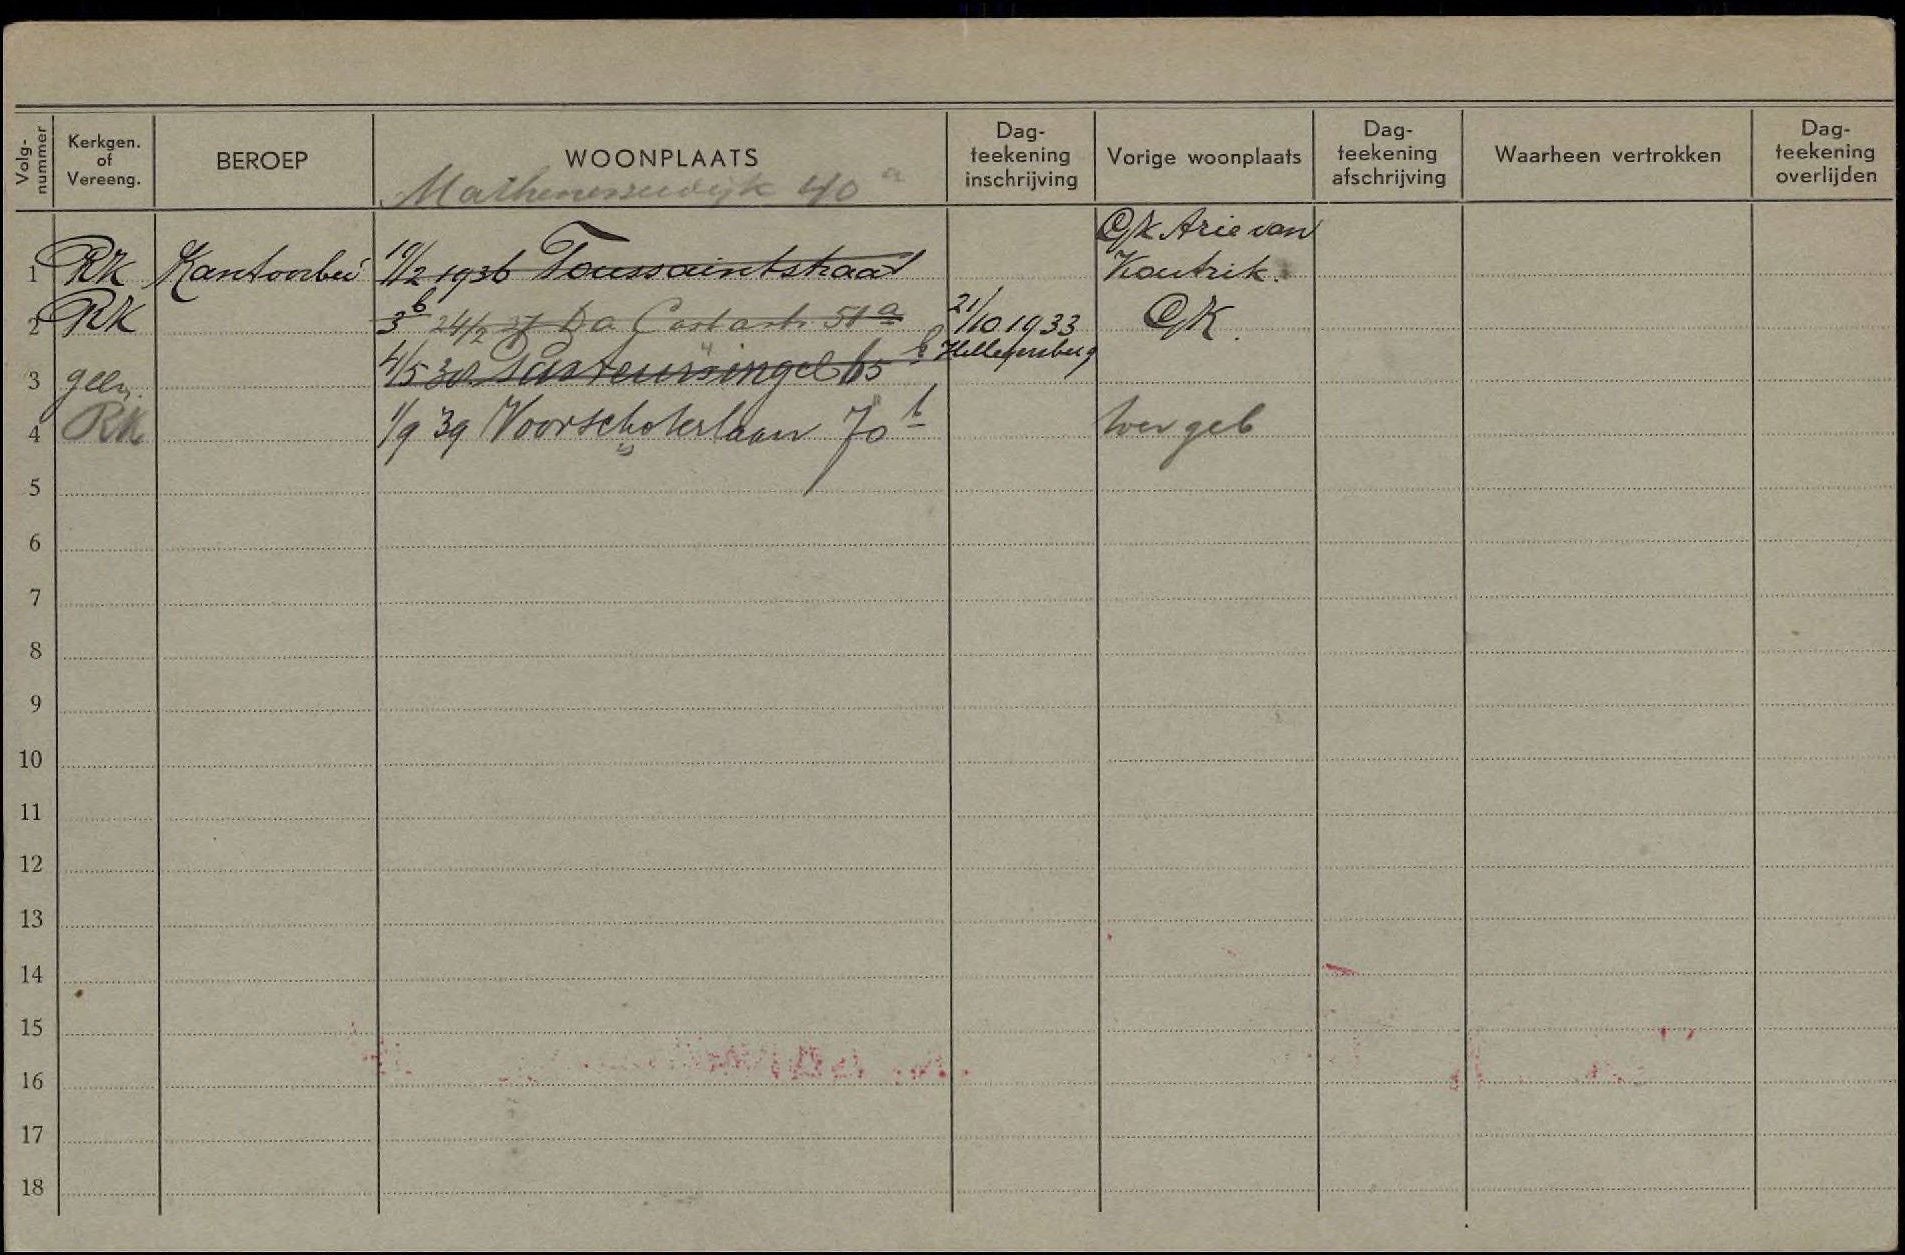 Volg-nummer Kerkgen. of Vereeng. BEROEP WOONPLAATS Dag-teekening inschrijving Vorige woonplaats Dag-teekening afschrijving Waarheen vertrokken Dag-teekening overlijden
Mathenesserdijk 40 a
G/K Arie van
1 RK Kantoorbed 19/2 1936 Toussaintstraat Koutrik.
2 RK 3b 24/2 37 Da Costastr. 51a 21/10 1933 G/K.
Hillegersberg
3 geen. 4/5 38 Pasteursingel 65 b
4 RK 1/9 39 Voorschoterlaan 70 b hier geb
5
6
7
8
9
10
11
12
13
14
15
16
17
18